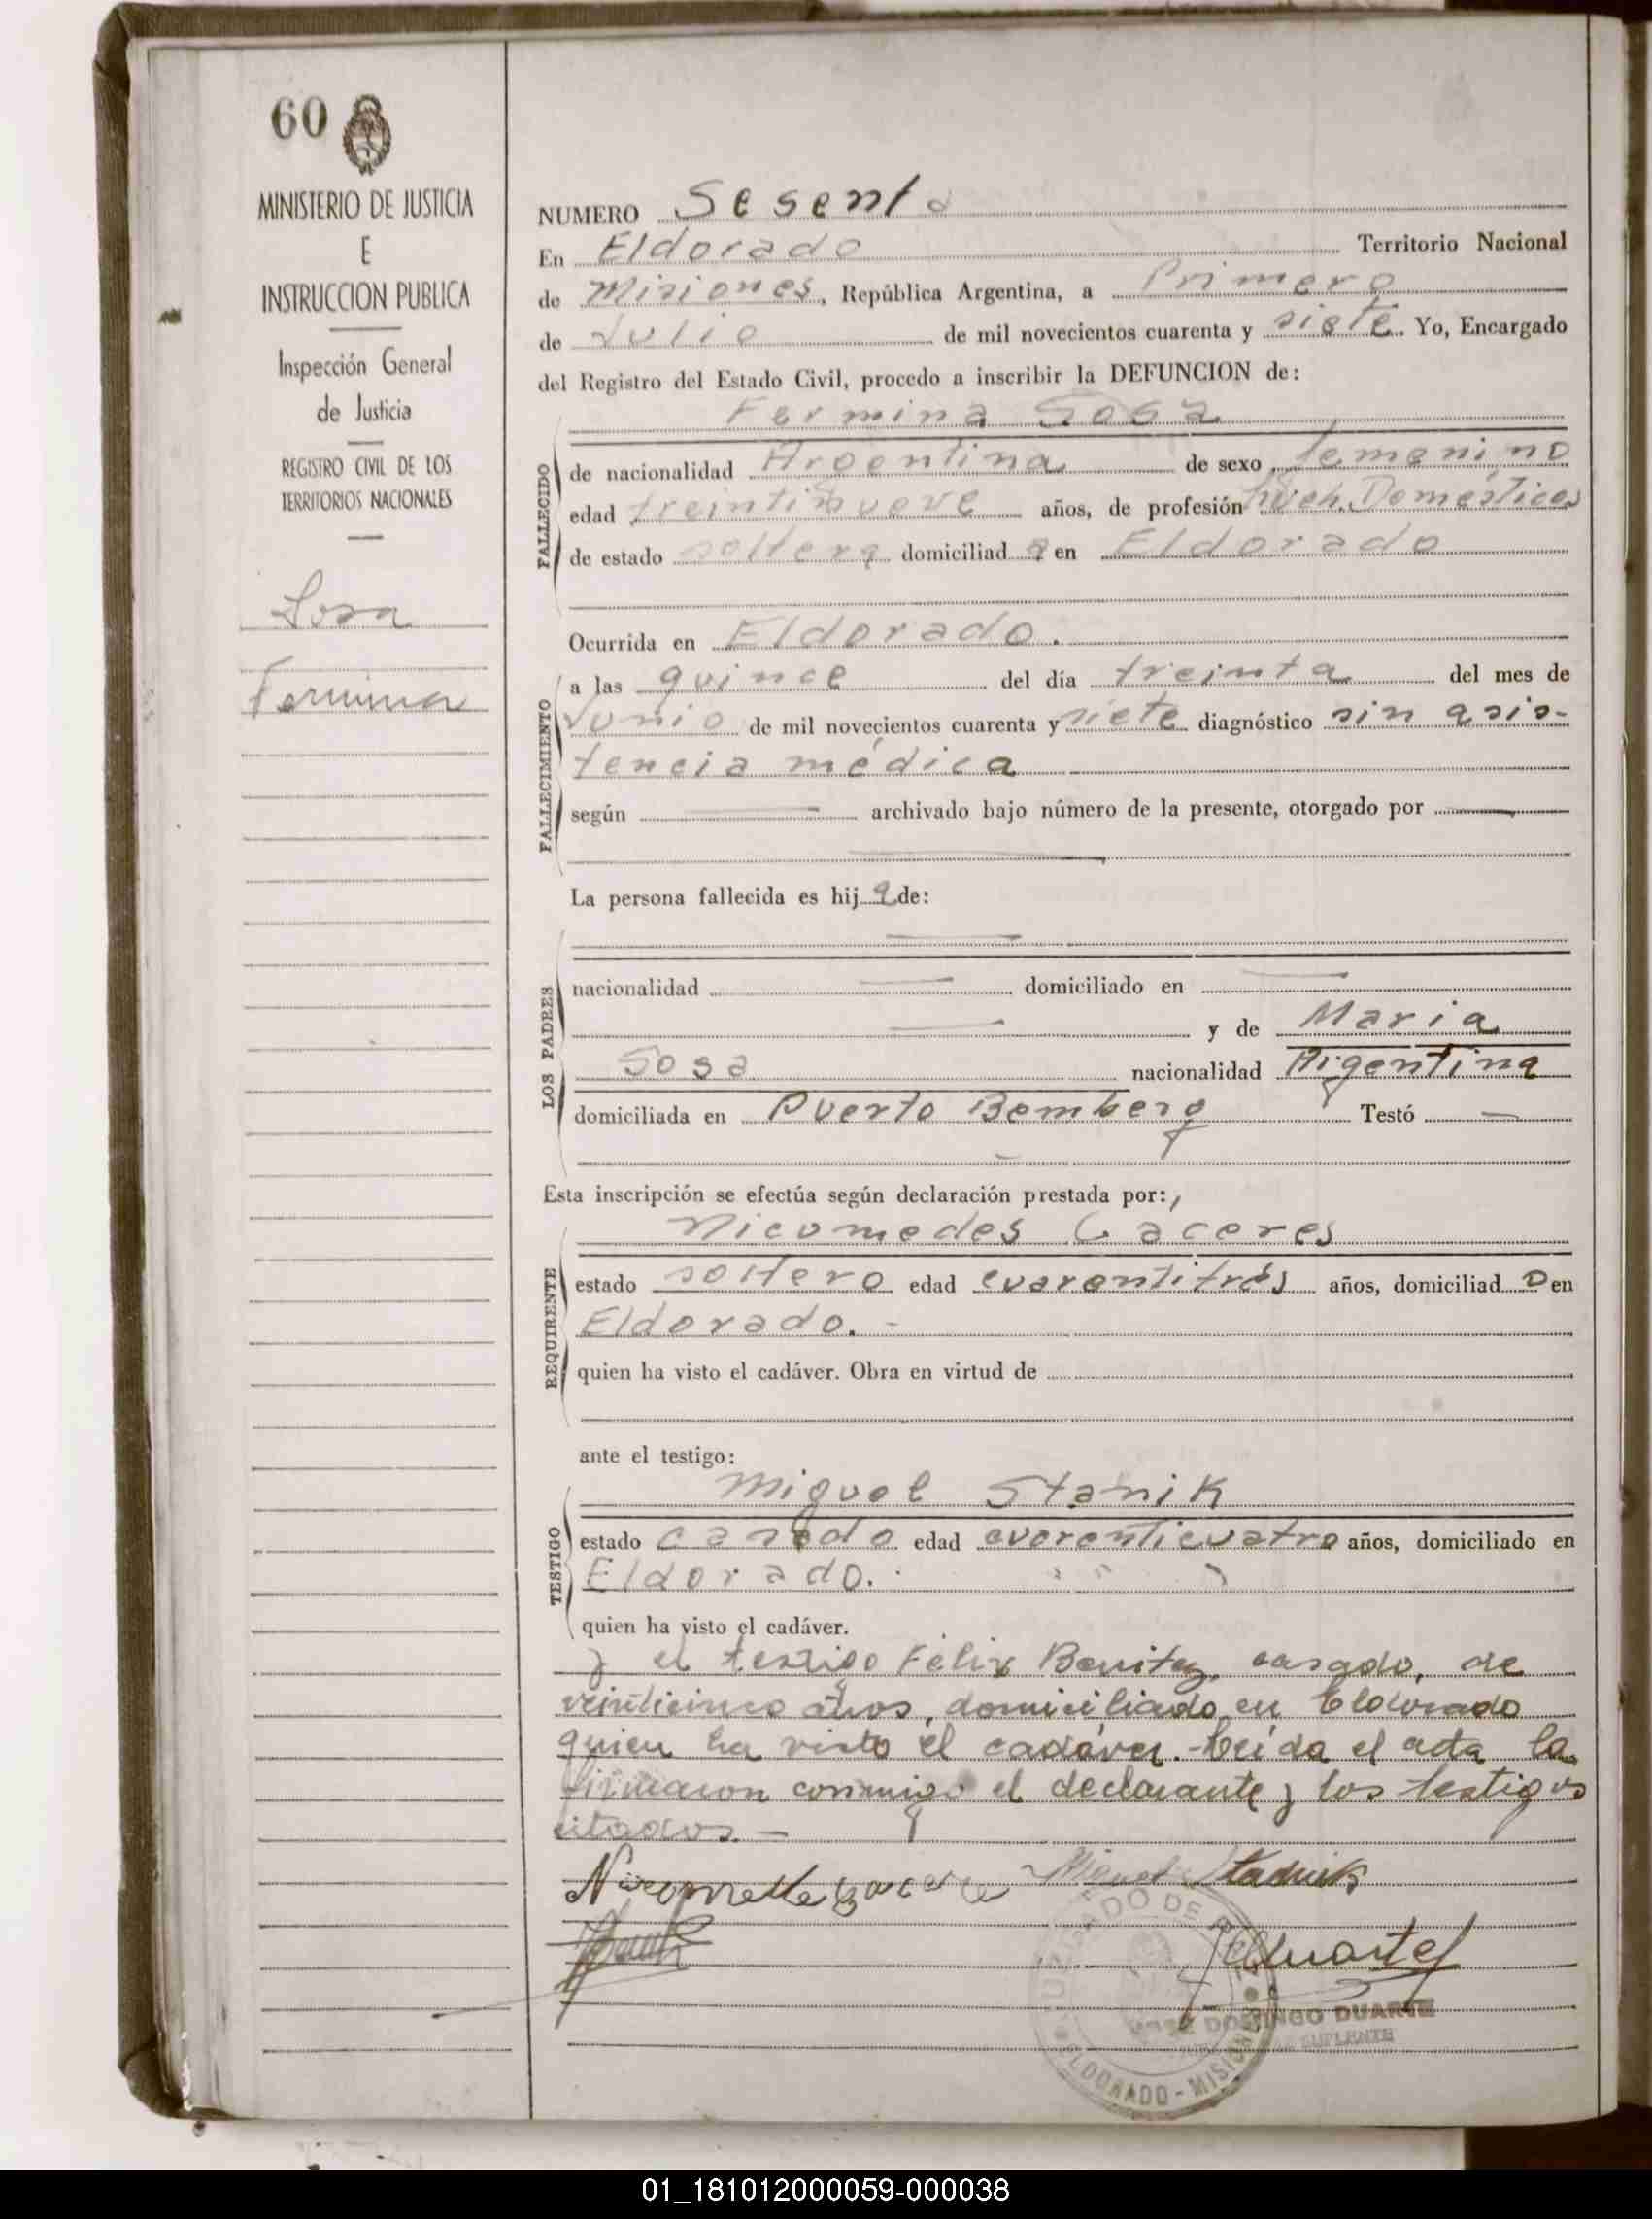 60
MINISTERIO DE JUSTICIA
E
INSTRUCCION PUBLICA
Inspección General
de Justicia
REGISTRO CIVIL DE LOS
TERRITORIOS NACIONALES
Sosa
Fermina
NUMERO Sesenta
En Eldorado Territorio Nacional
de Misiones, República Argentina, a Primero
de Julio de mil novecientos cuarenta y siete. Yo, Encargado
del Registro del Estado Civil, procedo a inscribir la DEFUNCION de:
Fermina Sosa
FALLECIDO
de nacionalidad Argentina de sexo femenino
edad treintinueve años, de profesión Queh. Domésticos
de estado soltera domiciliad a en Eldorado
Ocurrida en Eldorado.
FALLECIMIENTO
a las quince del día treinta del mes de
Junio de mil novecientos cuarenta y siete diagnóstico sin asis-
tencia médica
según archivado bajo número de la presente, otorgado por
La persona fallecida es hij a de:
LOS PADRES
nacionalidad domiciliado en
y de Maria
Sosa nacionalidad Argentina
domiciliada en Puerto Bemberg Testó
Esta inscripción se efectúa según declaración prestada por:
Nicomedes Caceres
REQUIRENTE
estado soltero edad cuarentitrés años, domiciliad o en
Eldorado.
quien ha visto el cadáver. Obra en virtud de
ante el testigo:
Miguel Stanik
TESTIGO
estado casado edad cuarenticuatro años, domiciliado en
Eldorado.
quien ha visto el cadáver.
y el testigo Félix Benitez, casado, de
veinticinco años, domiciliado en Eldorado
quien ha visto el cadáver. - Leída el acta la
firmaron conmigo el declarante y los testigos
citados. -
Miguel Stadnik
JDuarte
JOSE DOMINGO DUARTE
SUPLENTE
JUZGADO DE PAZ
ELDORADO - MISIONES
01_181012000059-000038